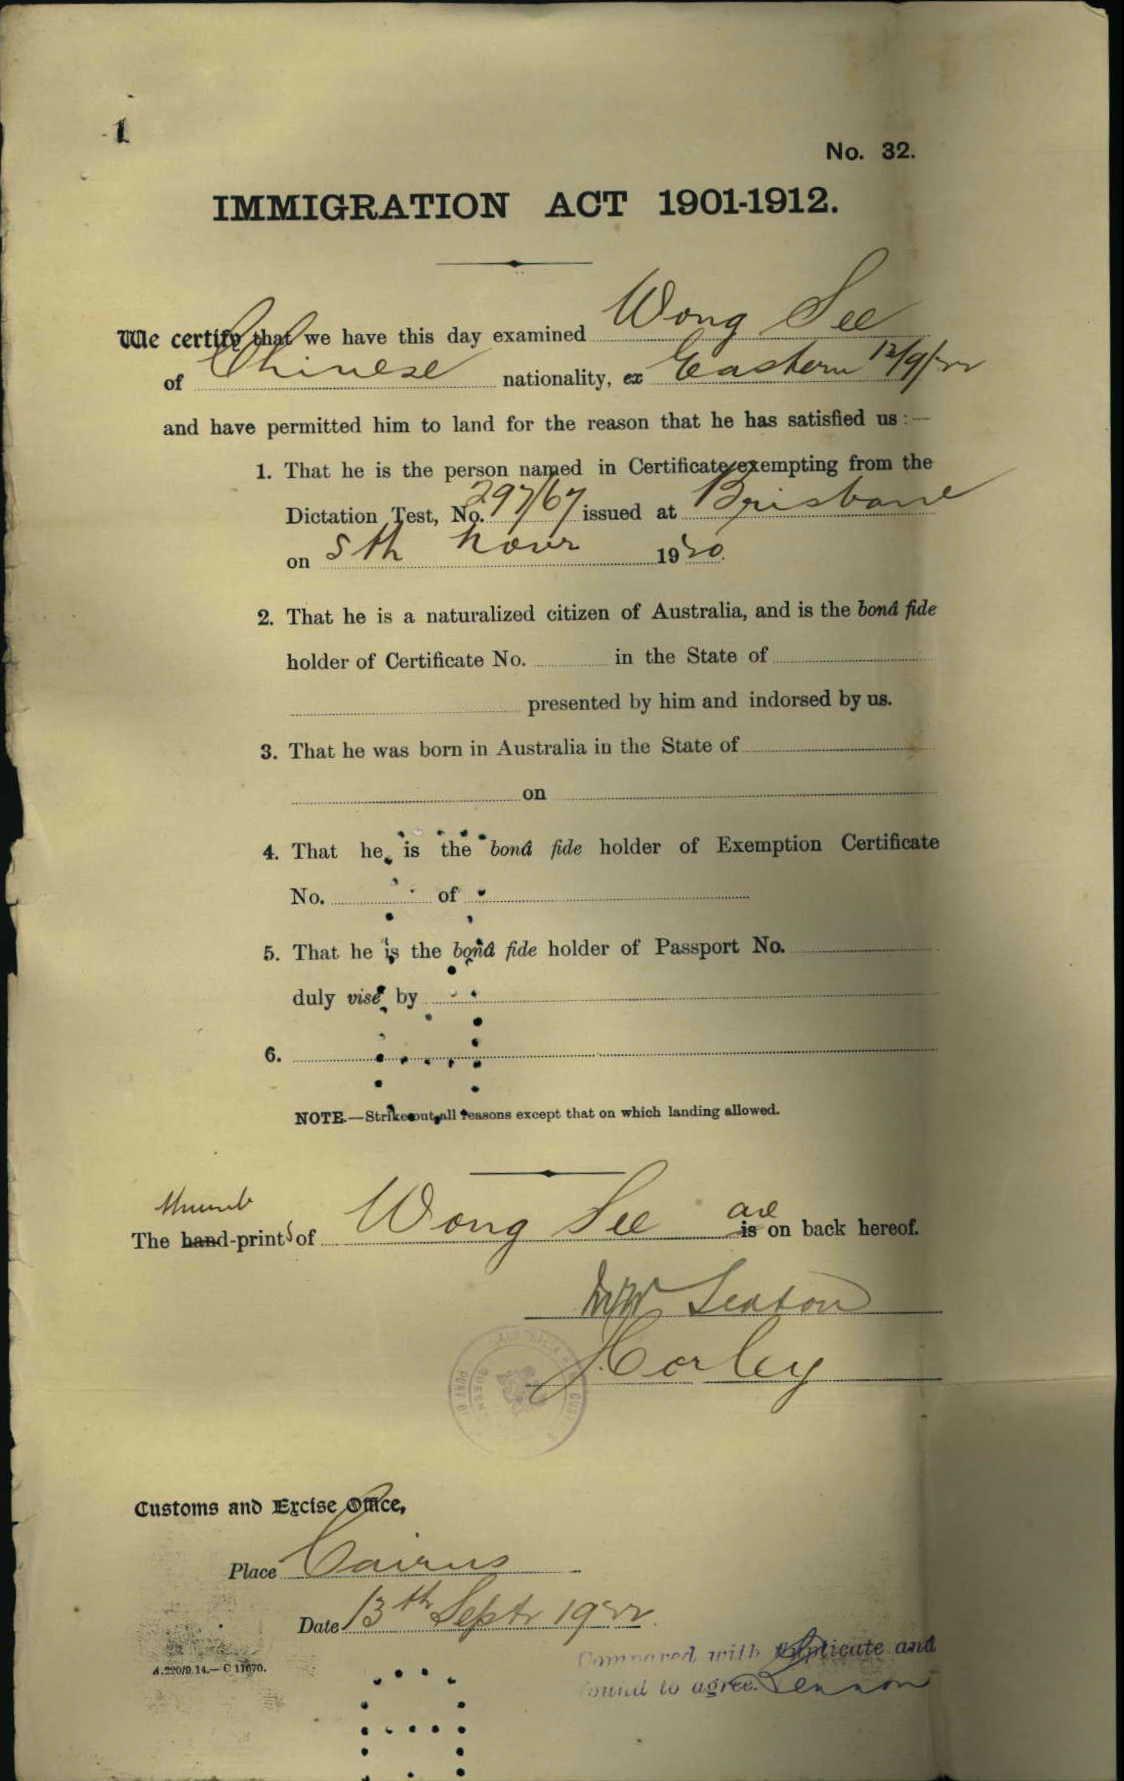 1
No. 32.
IMMIGRATION ACT 1901-1912.
We certify that we have this day examined Wong See
of Chinese nationality, ex Eastern 12/9/22
and have permitted him to land for the reason that he has satisfied us :—
1. That he is the person named in Certificate exempting from the
Dictation Test, No. 297/67 issued at Brisbane
on 5th Novr 1920.
2. That he is a naturalized citizen of Australia, and is the bonâ fide
holder of Certificate No. in the State of
presented by him and indorsed by us.
3. That he was born in Australia in the State of
on
4. That he is the bonâ fide holder of Exemption Certificate
No. of
5. That he is the bonâ fide holder of Passport No.
duly visé by
6.
NOTE.—Strike out all reasons except that on which landing allowed.
thumb
The hand-prints of Wong See are is on back hereof.
Seaton
Horley
Customs and Excise Office,
Place Cairns
Date 13th Septr 1922.
A.220/9.14.—C 11670.
Compared with duplicate and
found to agree. Lennon